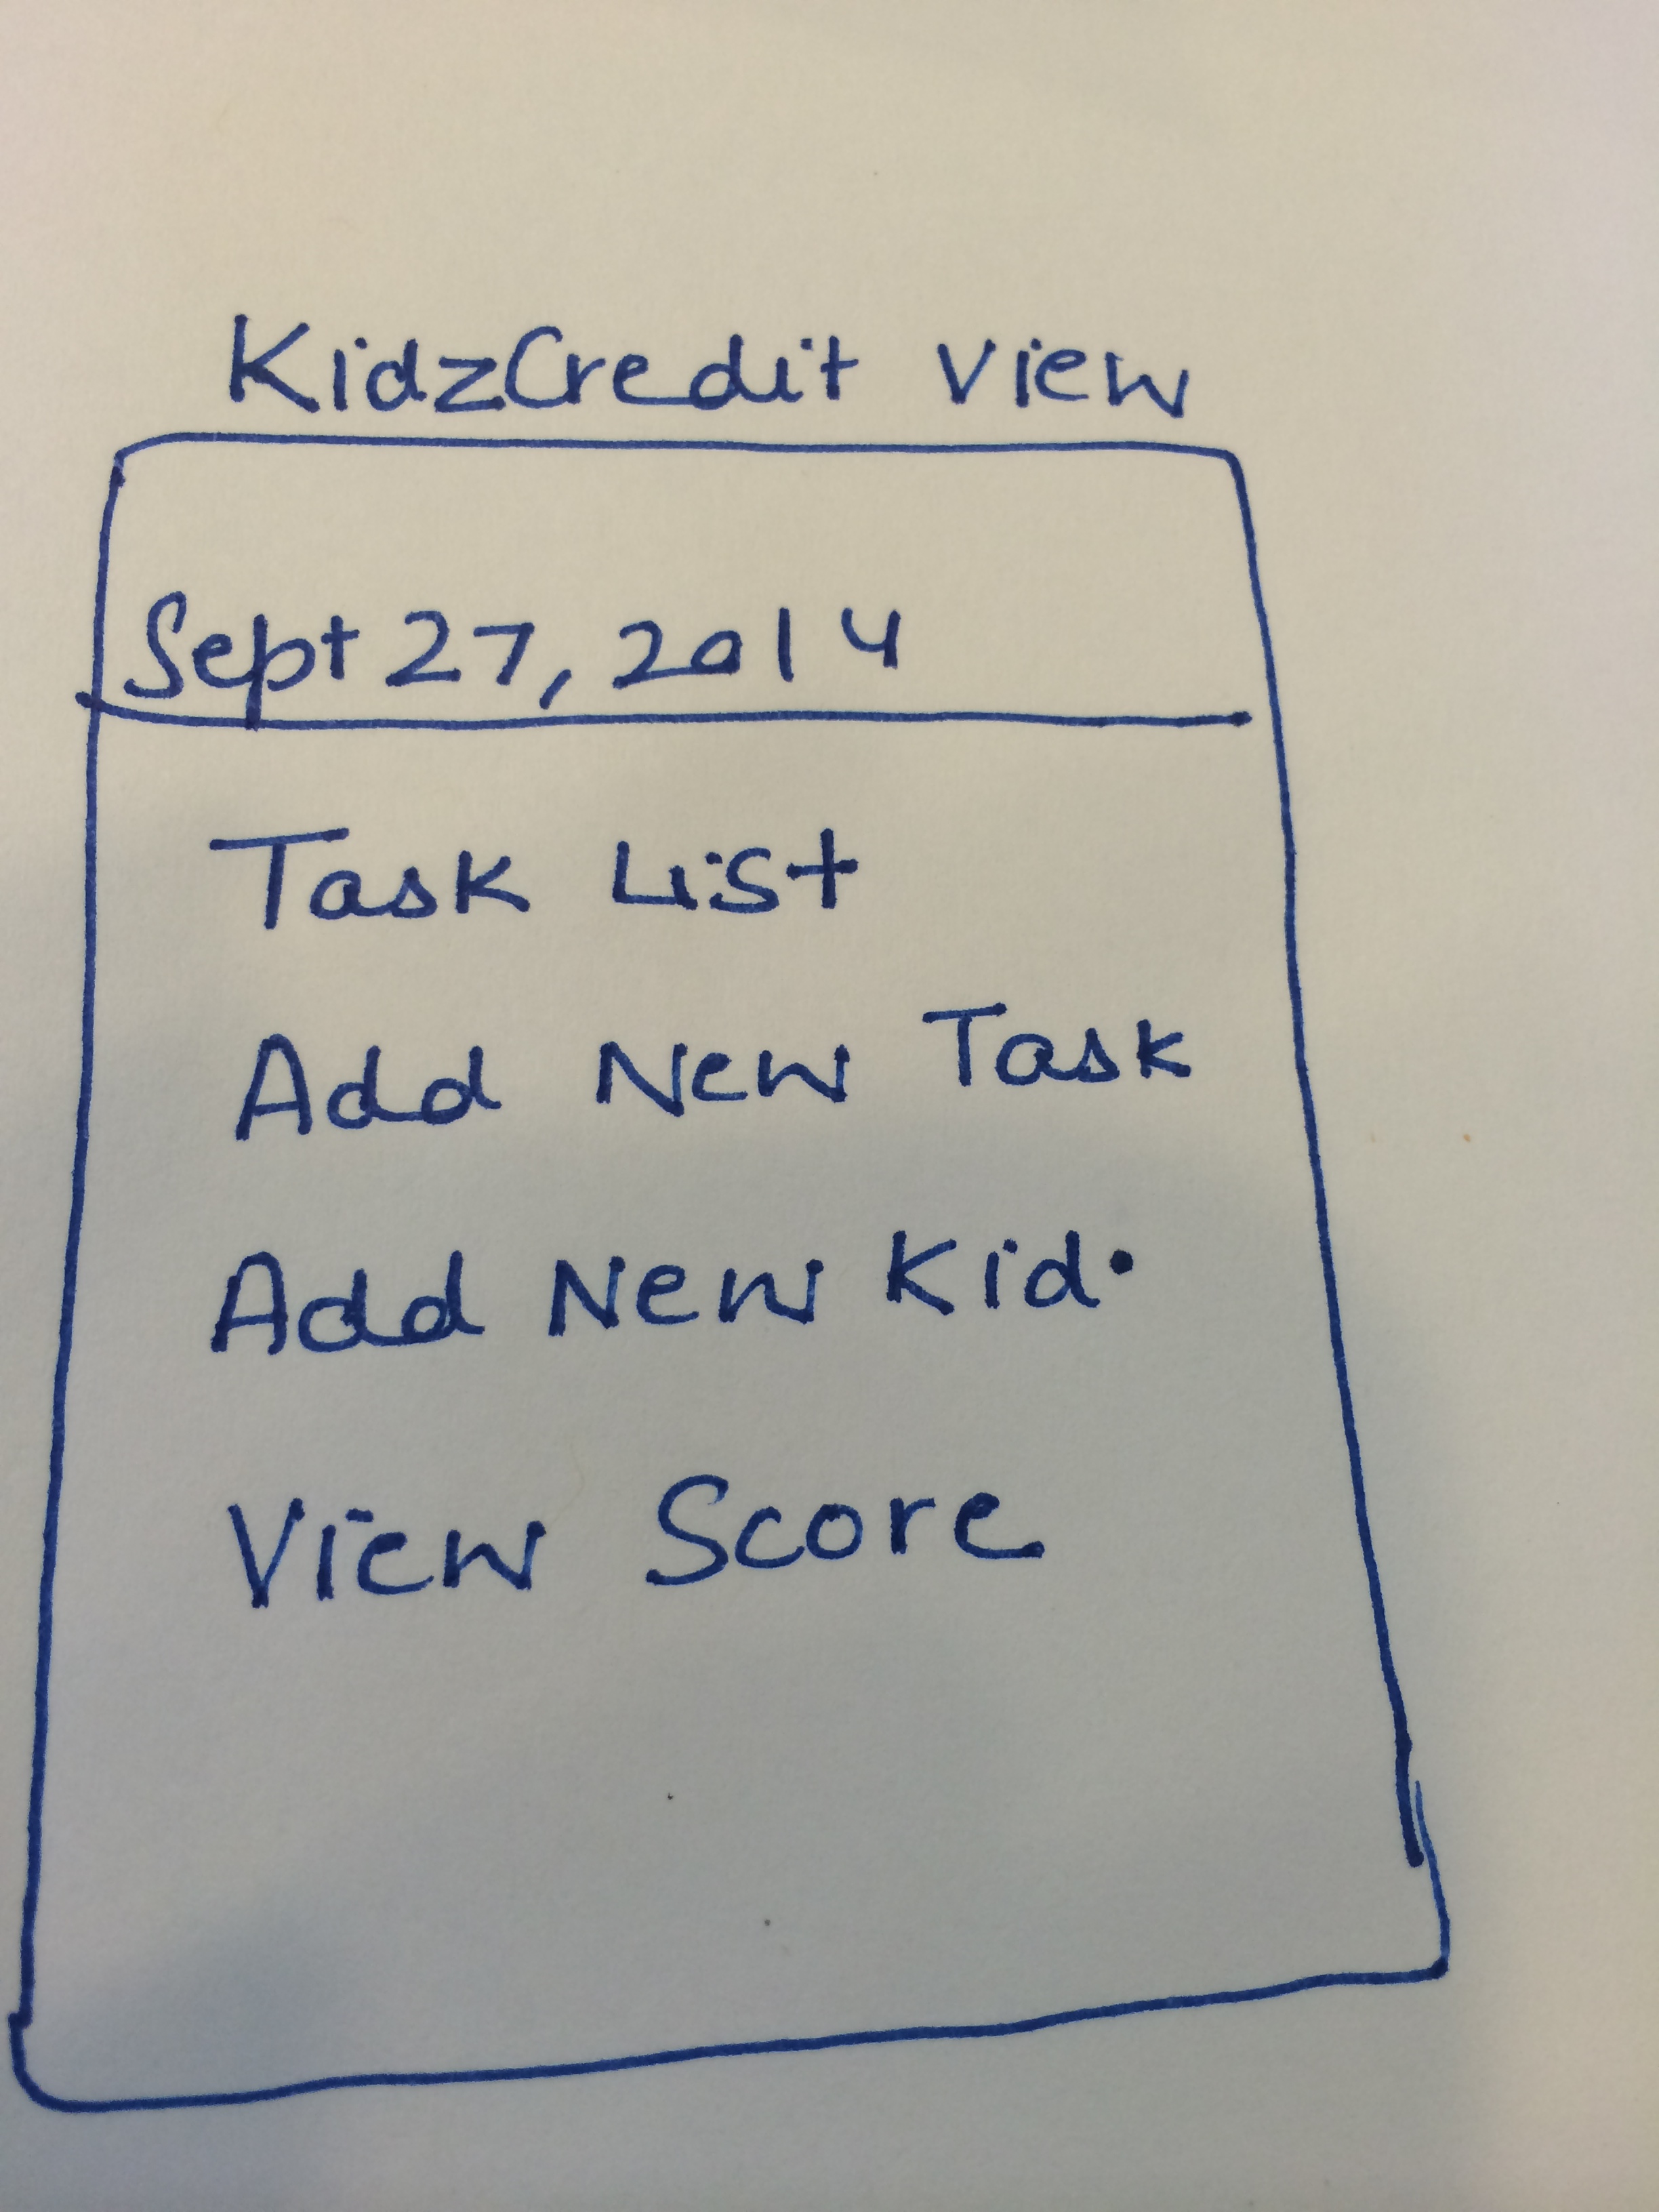 KidzCredit View
Sept 27, 2014
Task List
Add New Task
Add New Kid.
View Score